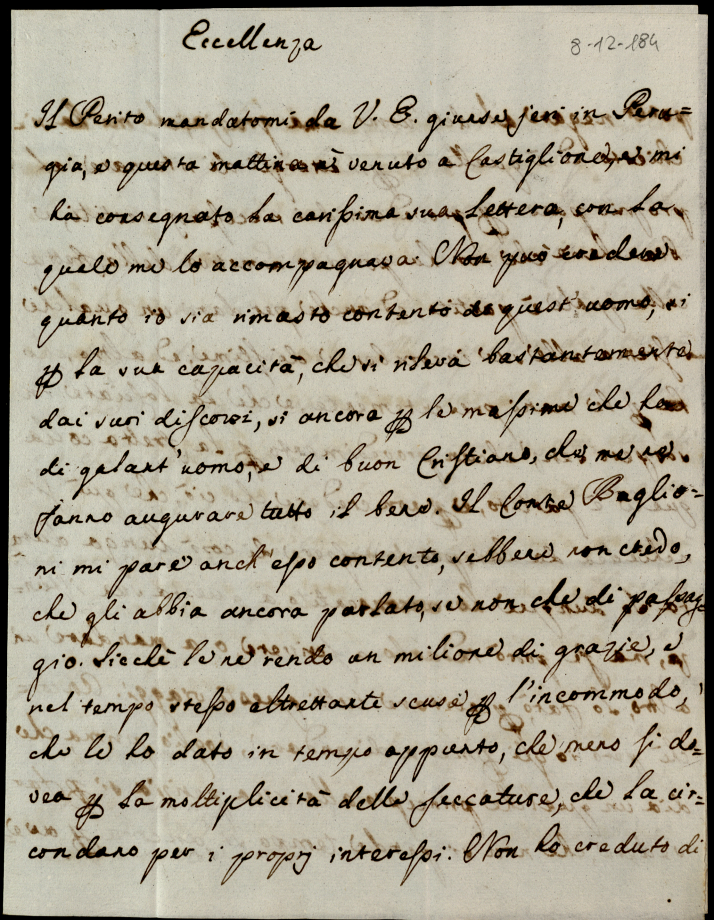 Eccellenza
8-12-184
Il Perito mandatomi da V. E. giunse jeri in Peru=
gia, e questa mattina è venuto a Castiglione, e mi
ha consegnato la carissima sua Lettera, con la
quale me lo accompagnava. Non può credere
quanto io sia rimasto contento di quest'uomo, si
ꝑ la sua capacità, che si rileva bastantemente
dai suoi discorsi, si ancora ꝑ le massime che ha
di galant'uomo, e di buon Cristiano, che me ne
fanno augurare tutto il bene. Il Conte Baglio=
ni mi pare anch'esso contento, sebbene non credo,
che gli abbia ancora parlato, se non che di passag=
gio. Sicchè le ne rendo un milione di grazie, e
nel tempo stesso altrettante scuse ꝑ l'incommodo,
che le ho dato in tempo appunto, che meno si do=
vea ꝑ la moltiplicità delle seccature, che la cir=
condano per i proprj interessi. Non ho creduto di